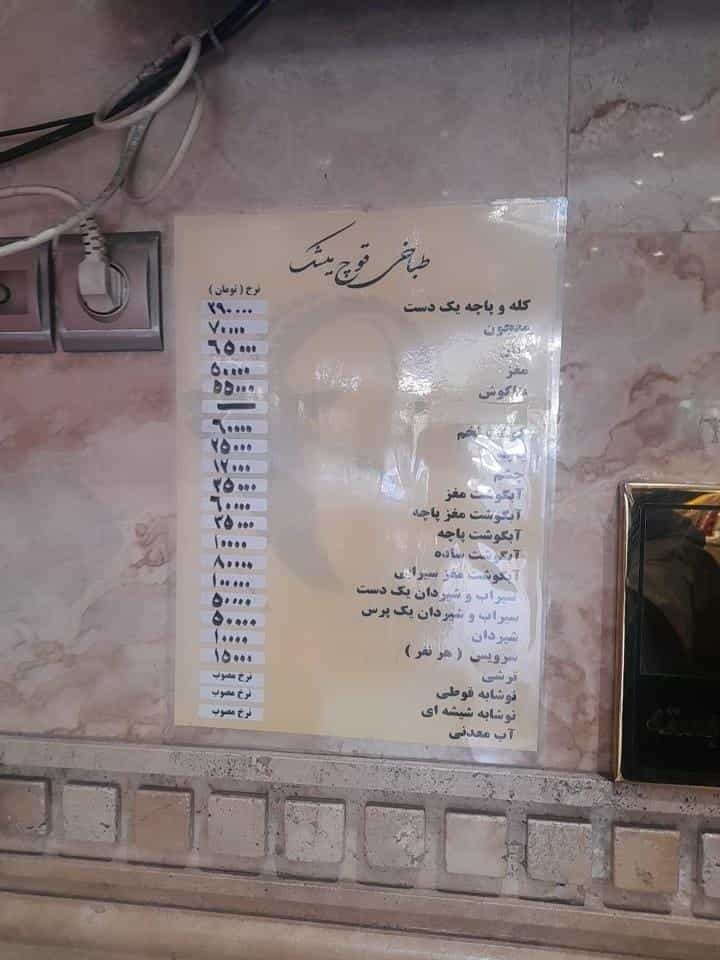 طباخی قوچ میشک
نرخ ( تومان )
کله و پاچه یک دست ۳۹۰۰۰۰
۷۰۰۰۰
۶۵۰۰۰
مغز ۵۰۰۰۰
بناگوش ۵۵۰۰۰
لخم
چشم
آبگوشت مغز ۳۵۰۰۰
آبگوشت مغز پاچه ۶۰۰۰۰
آبگوشت پاچه ۳۵۰۰۰
آبگوشت ساده ۱۰۰۰۰
آبگوشت مغز سیرابی ۸۰۰۰۰
سیراب و شیردان یک دست ۱۰۰۰۰۰
سیراب و شیردان یک پرس ۵۰۰۰۰
شیردان ۵۰۰۰۰
سرویس ( هر نفر ) ۱۰۰۰۰
ترشی ۱۵۰۰۰
نوشابه قوطی نرخ مصوب
نوشابه شیشه ای نرخ مصوب
آب معدنی نرخ مصوب